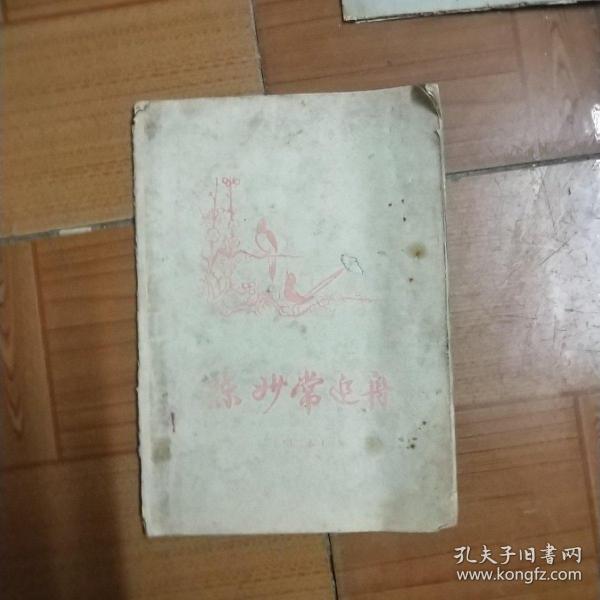 陈妙常追舟
孔夫子旧書网
www.kongfz.com